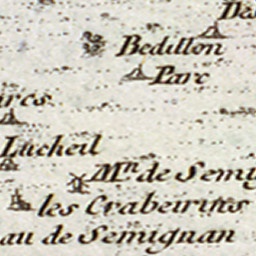 Bedillon
Parc
Lucheil
M.^n de Semi
les Crabeirines
au de Semignan